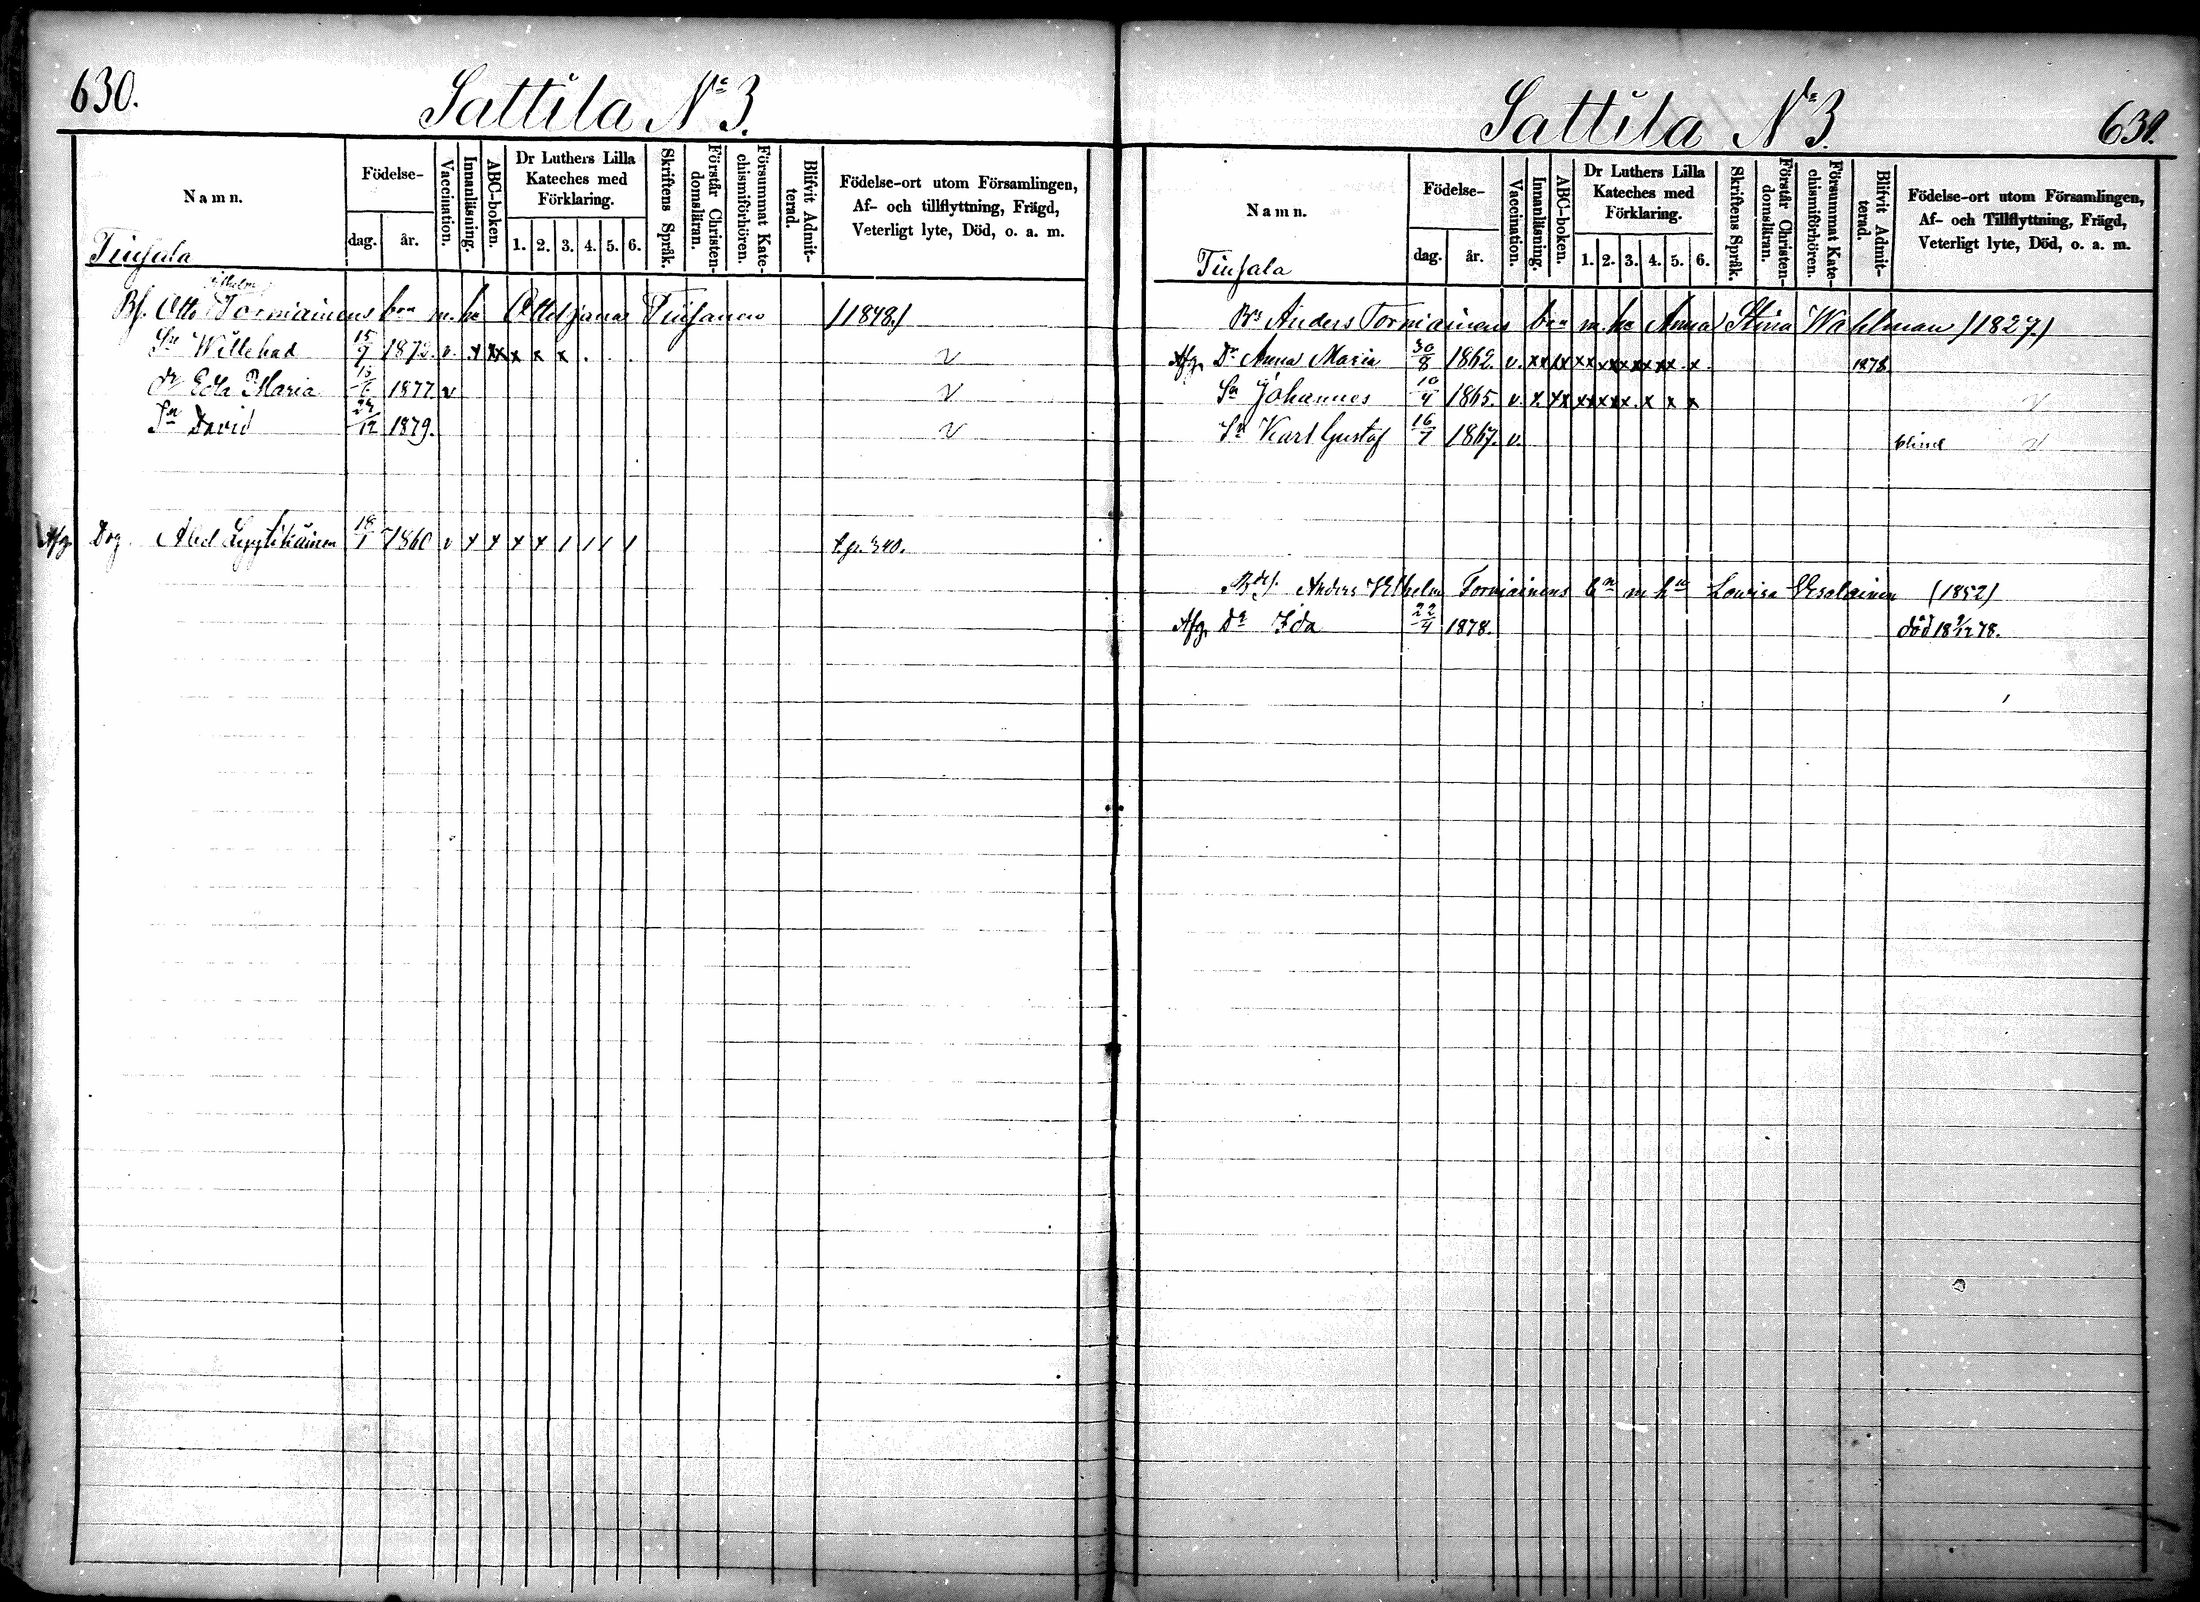 630.
Sattila No 3.
Namn.
Födelse-
dag.
år.
Vaccination.
Innanläsning.
ABC-boken.
Dr Luthers Lilla Kateches med Förklaring.
1. 2. 3. 4. 5. 6.
Skriftens Språk.
Förstår Christendomsläran.
Försummat Katechismiförhören.
Blifvit Admitterad.
Födelse-ort utom Församlingen,
Af- och tillflyttning, Frägd,
Veterligt lyte, Död, o. a. m.
Wilhelm
Bs. Otto Torniainens bn m. ha Ottiljana Tiusanen (1848)
Sn Willehad 15/9 1872. v. x xx x x x . . . v
dr Eda Maria 1877 v v
Sn David 24/12 1879. v
Afg. Drg Abel Lyytikäinen 18/1 1860 v x x x x / / / / t.p. 340.
Sattila No 3.
631.
Namn.
Födelse-
dag.
år.
Vaccination.
Innanläsning.
ABC-boken.
Dr Luthers Lilla Kateches med Förklaring.
1. 2. 3. 4. 5. 6.
Skriftens Språk.
Förstår Christendomsläran.
Försummat Katechismiförhören.
Blifvit Admitterad.
Födelse-ort utom Församlingen,
Af- och Tillflyttning, Frägd,
Veterligt lyte, Död, o. a. m.
Bs Anders Torniainens bn m. ha Anna Stina Wahlman (1827)
Afg. Dr Anna Maria 30/8 1862. v. xx xx xx xx xx xx x. x. 1878
Sn Johannes 10/4 1865. v. x. xx xx xx x. x x x v
Sn Karl Gustaf 16/7 1867. v. blind v
Bds. Anders Wilhelm Torniainens bn m hu Lovisa Wesalainen (1852)
Afg. Dr Ida 22/4 1878. död 18 9/12 78.